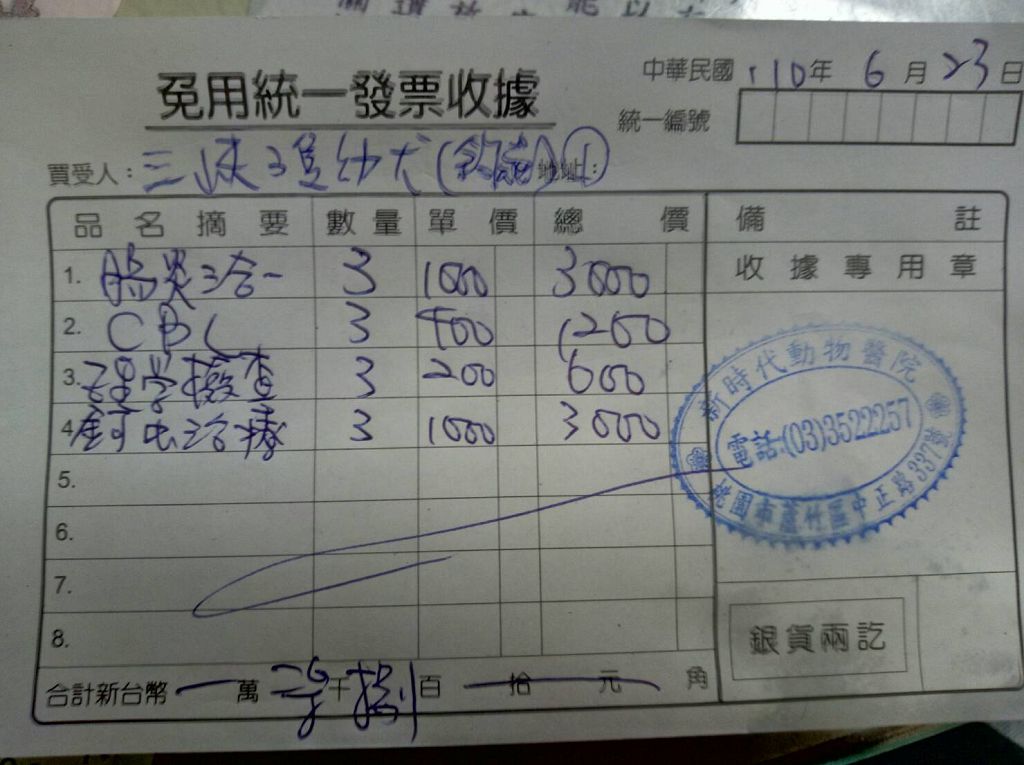 免用統一發票收據
中華民國 110年 6月 23日
統一編號
買受人：三峽3隻幼犬 地址：①
品名摘要 數量 單價 總價 備註
收據專用章
1. 腸炎三合一 3 1000 3000
2. CBC 3 400 1200
3. 理學檢查 3 200 600
4. 治療 3 1000 3000
5.
6.
7.
8.
新時代動物醫院
電話:(03)3522257
桃園市蘆竹區中正路337號
銀貨兩訖
合計新台幣 萬 千 捌 百 拾 元 角